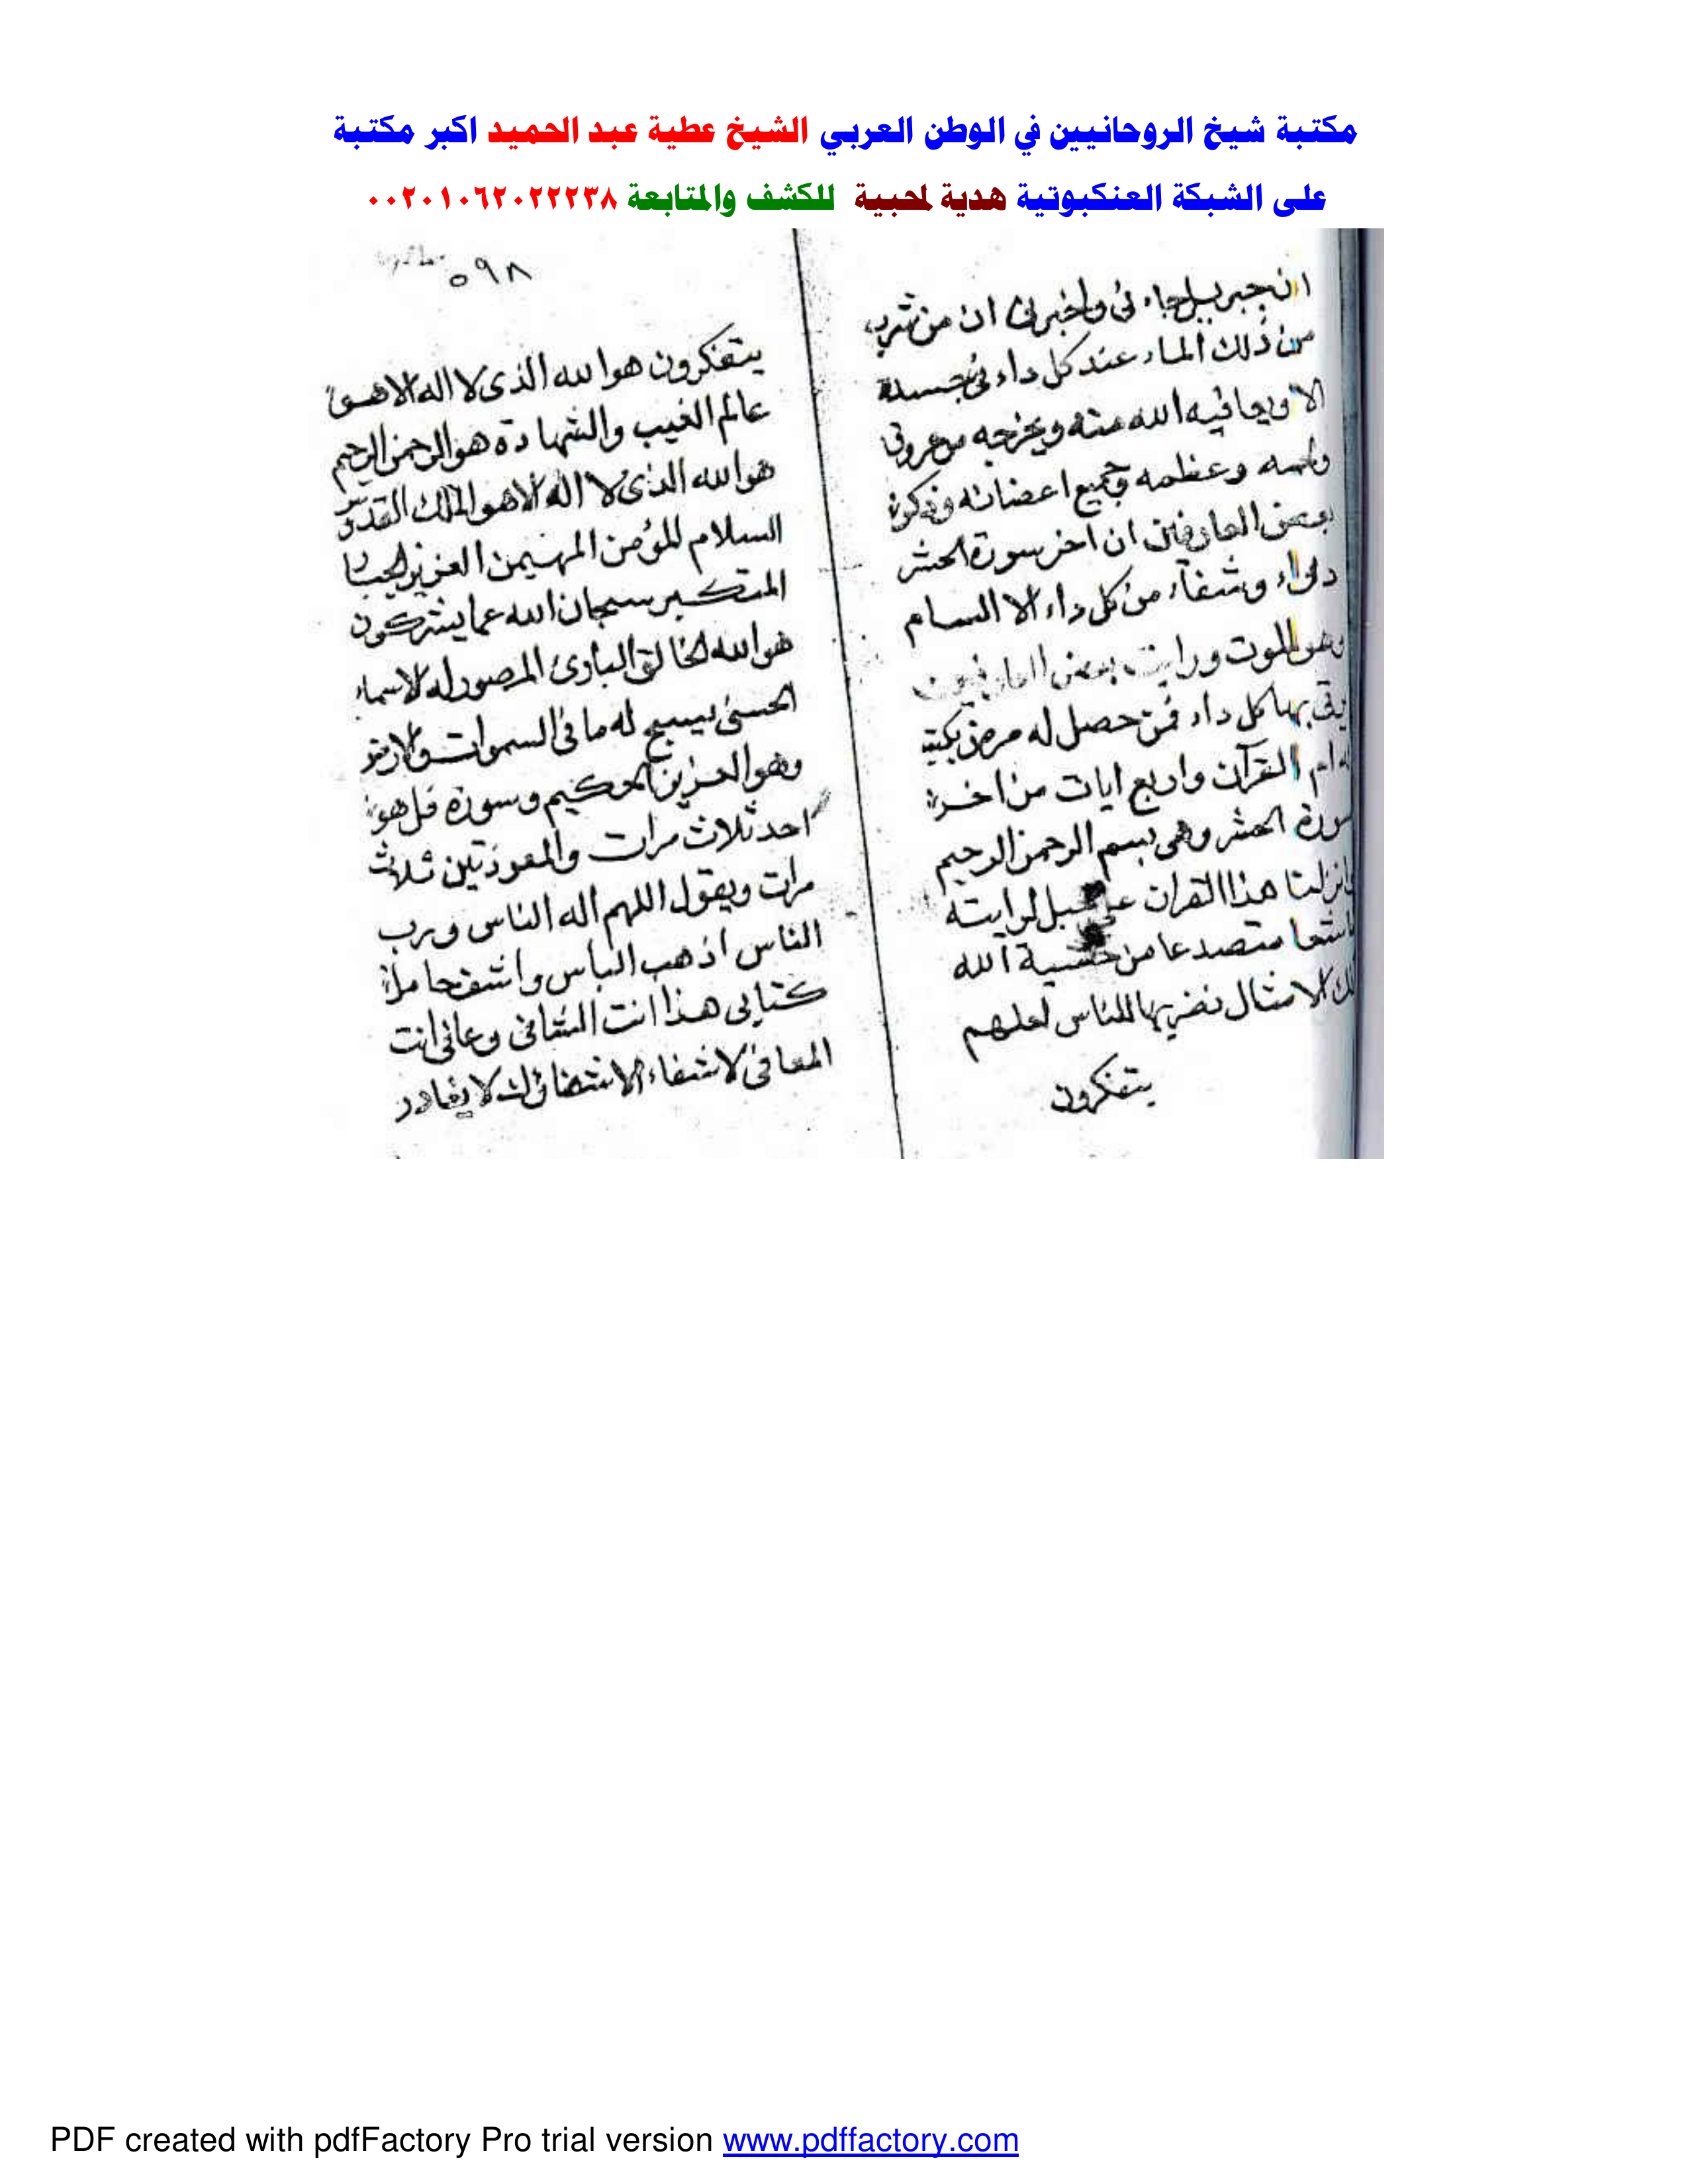 مكتبة شيخ الروحانيين في الوطن العربي الشيخ عطية عبد الحميد اكبر مكتبة
على الشبكة العنكبوتية هدية لمحبية للكشف والمتابعة ٠٠٢٠١٠٦٢٠٢٢٢٣٨
ان جبريل جاءنى واخبرنى ان من شرب
من ذلك الماء عند كل داء فى جسده
الا ويعافيه الله منه ويخرجه من عروقه
ولحمه وعظمه وجميع اعضائه وذكر
بعض العارفين ان اخر سورة الحشر
دواء وشفآء من كل داء الا السام
وهو الموت ورايت بعض العارفين
يرقى بها كل داء فمن حصل له مرض يكتب
له ام القرآن واربع ايات من اخر
سورة الحشر وهى بسم الرحمن الرحيم
انزلنا هذا القران على جبل لرايته
خاشعا متصدعا من خشية الله
تلك الامثال نضربها للناس لعلهم
يتفكرون
٥٩٨
يتفكرون هو الله الذى لا اله الا هو
عالم الغيب والشهادة هو الرحمن الرحيم
هو الله الذى لا اله الا هو الملك القدوس
السلام المؤمن المهيمن العزيز الجبار
المتكبر سبحان الله عما يشركون
هو الله الخالق البارئ المصور له الاسماء
الحسنى يسبح له ما فى السموات والارض
وهو العزيز الحكيم وسورة قل هو
احد ثلاث مرات والمعوذتين ثلاث
مرات ويقول اللهم اله الناس ورب
الناس اذهب الباس واشف حامل
كتابى هذا انت الشافى وعافى انت
المعافى لا شفاء الا شفاؤك لا يغادر
PDF created with pdfFactory Pro trial version www.pdffactory.com